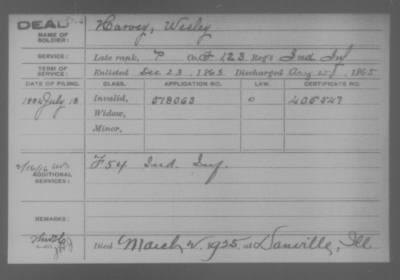 DEAD
NAME OF SOLDIER: Harvey, Wesley
SERVICE: Late rank, ? Co. F 123 Reg't Ind Inf
TERM OF SERVICE: Enlisted Dec 23, 1863. Discharged Aug 25, 1865
DATE OF FILING. CLASS. APPLICATION NO. LAW. CERTIFICATE NO.
1884 July 18 Invalid, 518063 0 405547
Widow,
Minor,
ADDITIONAL SERVICES: F 54 Ind. Inf.
REMARKS:
Died March 2, 1925, at Danville, Ill